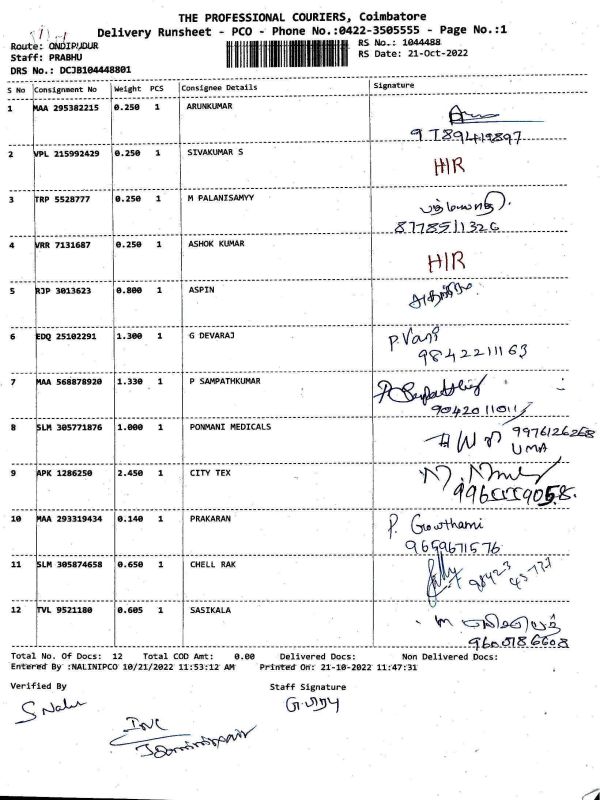 THE PROFESSIONAL COURIERS, Coimbatore
Delivery Runsheet - PCO - Phone No.:0422-3505555 - Page No.:1
Route: ONDIPUDUR
RS No.: 1044488
Staff: PRABHU
RS Date: 21-Oct-2022
DRS No.: DCJB104448801
S No Consignment No Weight PCS Consignee Details Signature
1 MAA 295382215 0.250 1 ARUNKUMAR
9789419897
2 VPL 215992429 0.250 1 SIVAKUMAR S H/R
3 TRP 5528777 0.250 1 M PALANISAMYY
8778511326
4 VRR 7131687 0.250 1 ASHOK KUMAR H/R
5 RJP 3013623 0.800 1 ASPIN
6 EDQ 25102291 1.300 1 G DEVARAJ P. Vani
9842211163
7 MAA 568878920 1.330 1 P SAMPATHKUMAR
9042011011
8 SLM 305771876 1.000 1 PONMANI MEDICALS 9976126268
UMA
9 APK 1286250 2.450 1 CITY TEX
10 MAA 293319434 0.140 1 PRAKARAN P. Gowthami
9659671576
11 SLM 305874658 0.650 1 CHELL RAK 98423 43777
12 TVL 9521180 0.605 1 SASIKALA
9600186608
Total No. Of Docs: 12 Total COD Amt: 0.00 Delivered Docs: Non Delivered Docs:
Entered By :NALINIPCO 10/21/2022 11:53:12 AM Printed On: 21-10-2022 11:47:31
Verified By Staff Signature